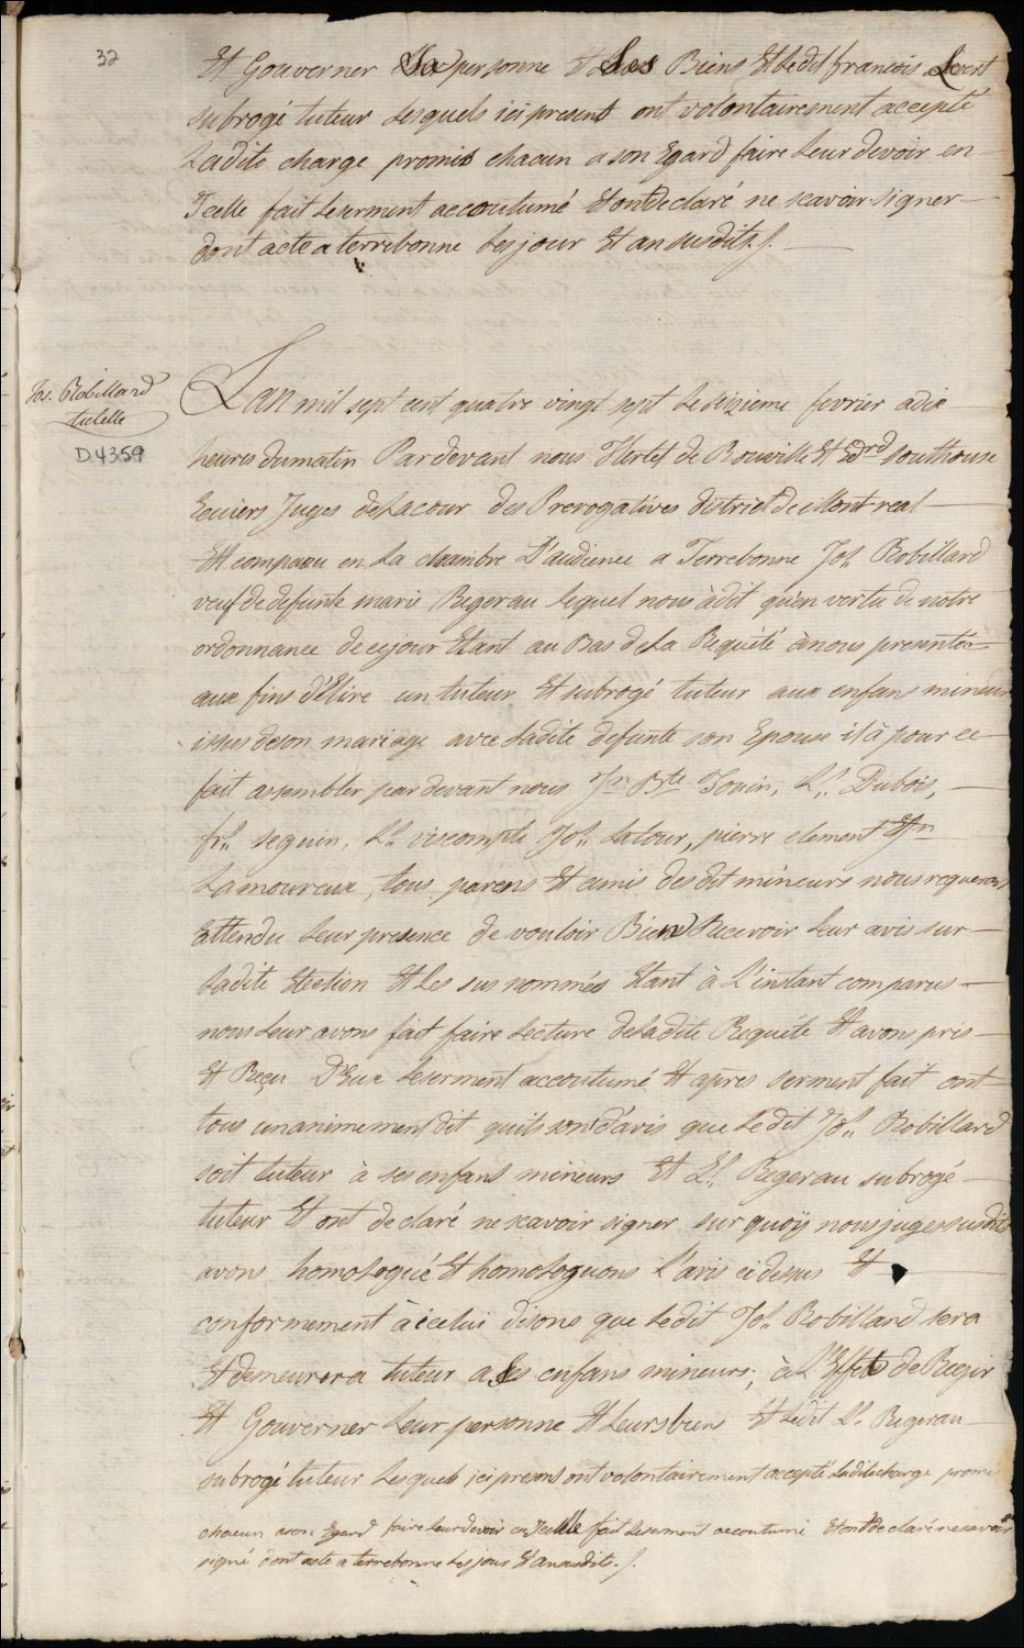 32
Et Gouverner Sa personne Et Ses Biens Et Ledit francois Levert
subrogé tuteur Lesquels ici present ont volontairement accepté
Ladite charge promis chacun a son Egard faire Leur devoir en
Icelle fait Leserment accoutumé Et ont declaré ne scavoir signer
dont acte a terrebonne Les jour Et an susdits ./.
Jos. Robillard
tutelle
D4359
Lan mil sept cent quatre vingt sept Le seizieme fevrier a dix
heures dumatin Pardevant nous Hertel de Rouville Et Edrd Southouse
Ecuiers Juges deLacour des Prerogatives district de Montreal
Est comparu en La chambre D'audience a Terrebonne Jos. Robillard
veuf de defunte marie Regerau lequel nous à dit qu'en vertu de notre
ordonnance de cejour Etant au Bas deLa Requête à nous presentée
aux fins d'Elire un tuteur Et subrogé tuteur aux enfans mineurs
issus deson mariage avec Ladite defunte son Epouse il à pour ce
fait assembler par devant nous Jn Bte Gouin, Ls. Dubois,
frs. seguin, Ls. viscompte Jos. Latour, pierre clement Et Jn
Lamoureux, tous parens Et amis desdit mineurs nous requerant
attendu Leur presence de vouloir Bien Recevoir Leur avis sur
Ladite Election Et Les sus nommés Etant à L'instant comparus
nous Leur avons fait faire Lecture deLadite Requête Et avons pris
Et Reçu D'Eux Leserment accoutumé Et après serment fait ont
tous unanimement dit quils sont d'avis que Ledit Jos. Robillard
soit tuteur à ses enfans mineurs Et Ls. Regerau subrogé
tuteur Et ont declaré ne scavoir signer sur quoÿ nous juges susdits
avons homologué Et homologuons L'avis ci dessus Et
conformement à icelui disons que Ledit Jos. Robillard sera
Et demeurera tuteur a Ses enfans mineurs; à L'Effet de Regir
Et Gouverner Leur personne Et Leurs biens Et Ledit Ls. Regerau
subrogé tuteur Lesquels ici present ont volontairement accepté Ladite charge promis
chacun a son Egard faire Leur devoir en Icelle fait Leserment accoutumé Et ont declaré ne savoir
signé dont acte a terrebonne Les jour Et an susdits ./.